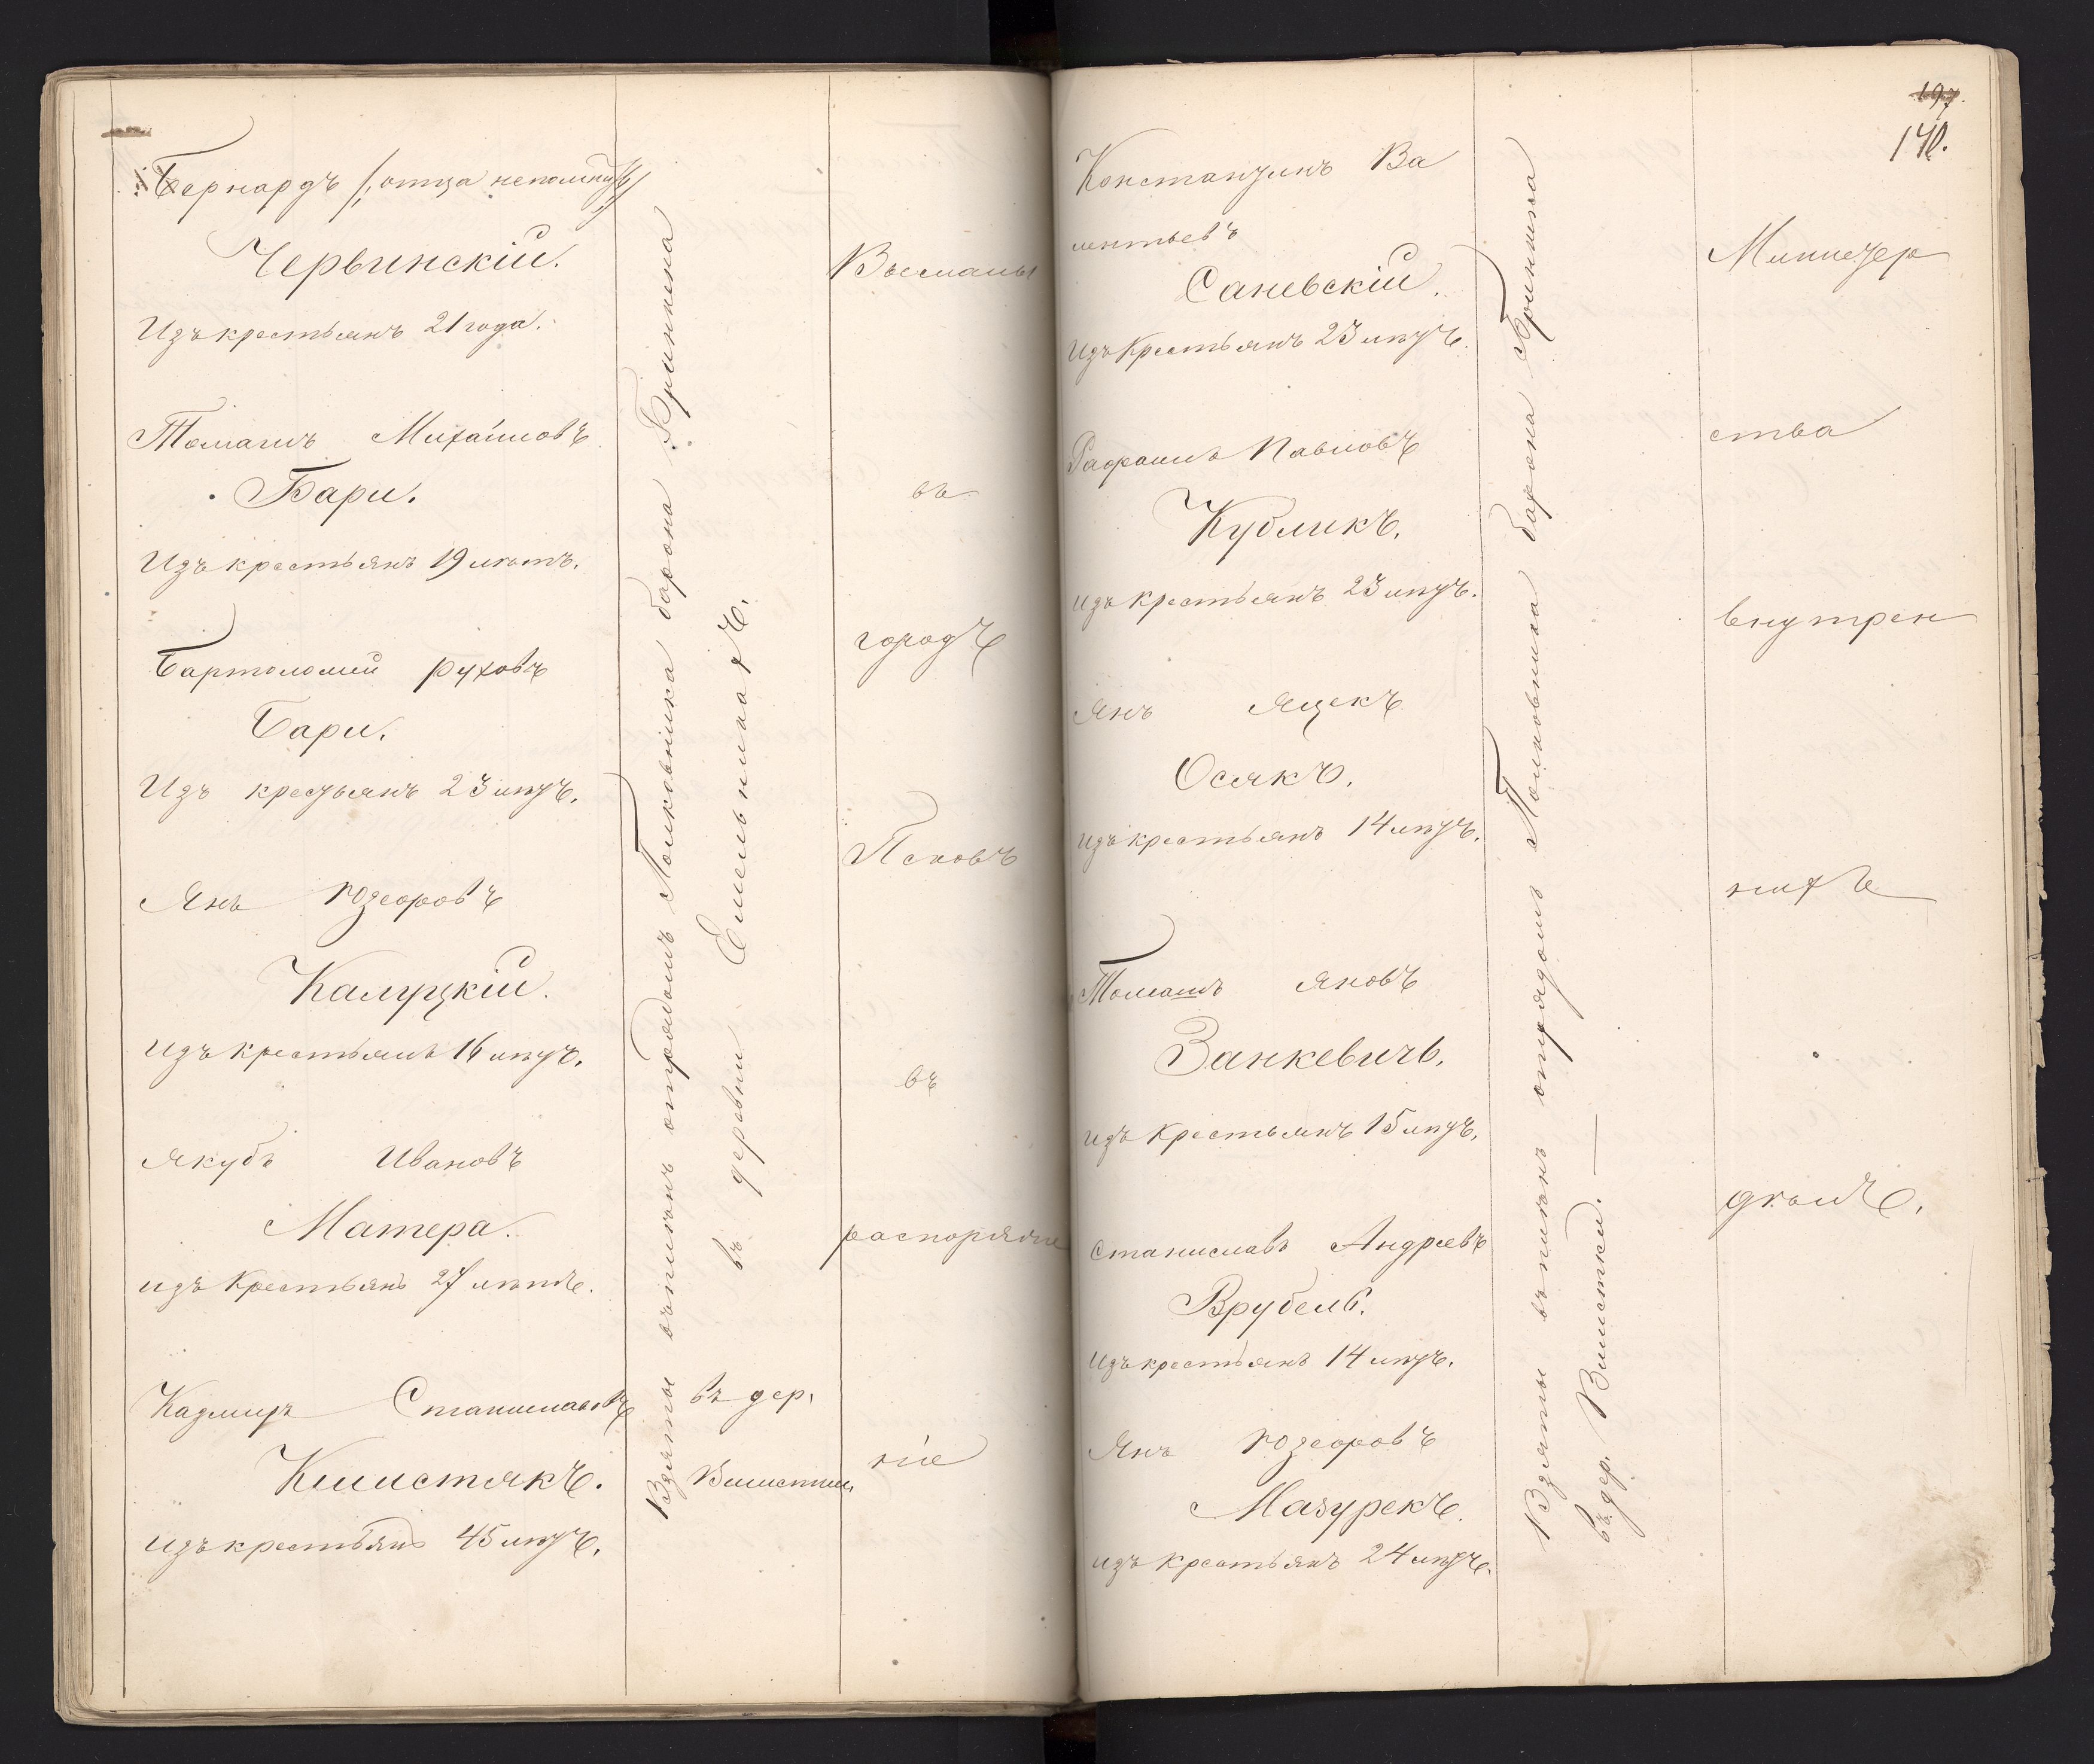 Бернардъ /: отца непомнитъ :/
Червинскій.
Изъ крестьянъ 21 года.
Томашъ Михайловъ
Бари.
Изъ крестьянъ 19 лѣтъ.
Бартоломій
Бари.
Изъ крестьянъ 23 лѣтъ.
Янъ
Калуцкій.
изъ крестьянъ 16 лѣтъ.
Якубъ Ивановъ
Матера.
изъ крестьянъ 27 лѣтъ.
Казмиръ Станиславовъ
изъ крестьянъ 45 лѣтъ.
Взяты въ плѣнъ отрядомъ Полковника барона
въ деревни
въ дер.
Высланы
въ
городъ
Псковъ
въ
распоряже
ніе
197
Ва
лентьевъ
Саневскій.
Изъ крестьянъ 23 лѣтъ.
Павловъ
Кубликъ.
изъ крестьянъ 23 лѣтъ.
Янъ Яцекъ
Осякъ.
изъ крестьянъ 14 лѣтъ.
Томашъ Яновъ
Занкевичъ.
изъ крестьянъ 15 лѣтъ.
Станиславъ Андреевъ
Врубель.
Изъ крестьянъ 14 лѣтъ.
Янъ
Мазурекъ.
изъ крестьянъ 24 лѣтъ.
Взяты въ плѣнъ отрядомъ Полковника барона
въ дер.
Министер
ства
внутрен
нихъ
дѣлъ.